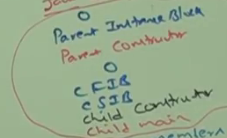 O
Parent Instance Block
Parent Constructor
O
CFIB
CSIB
child Constructor
child main